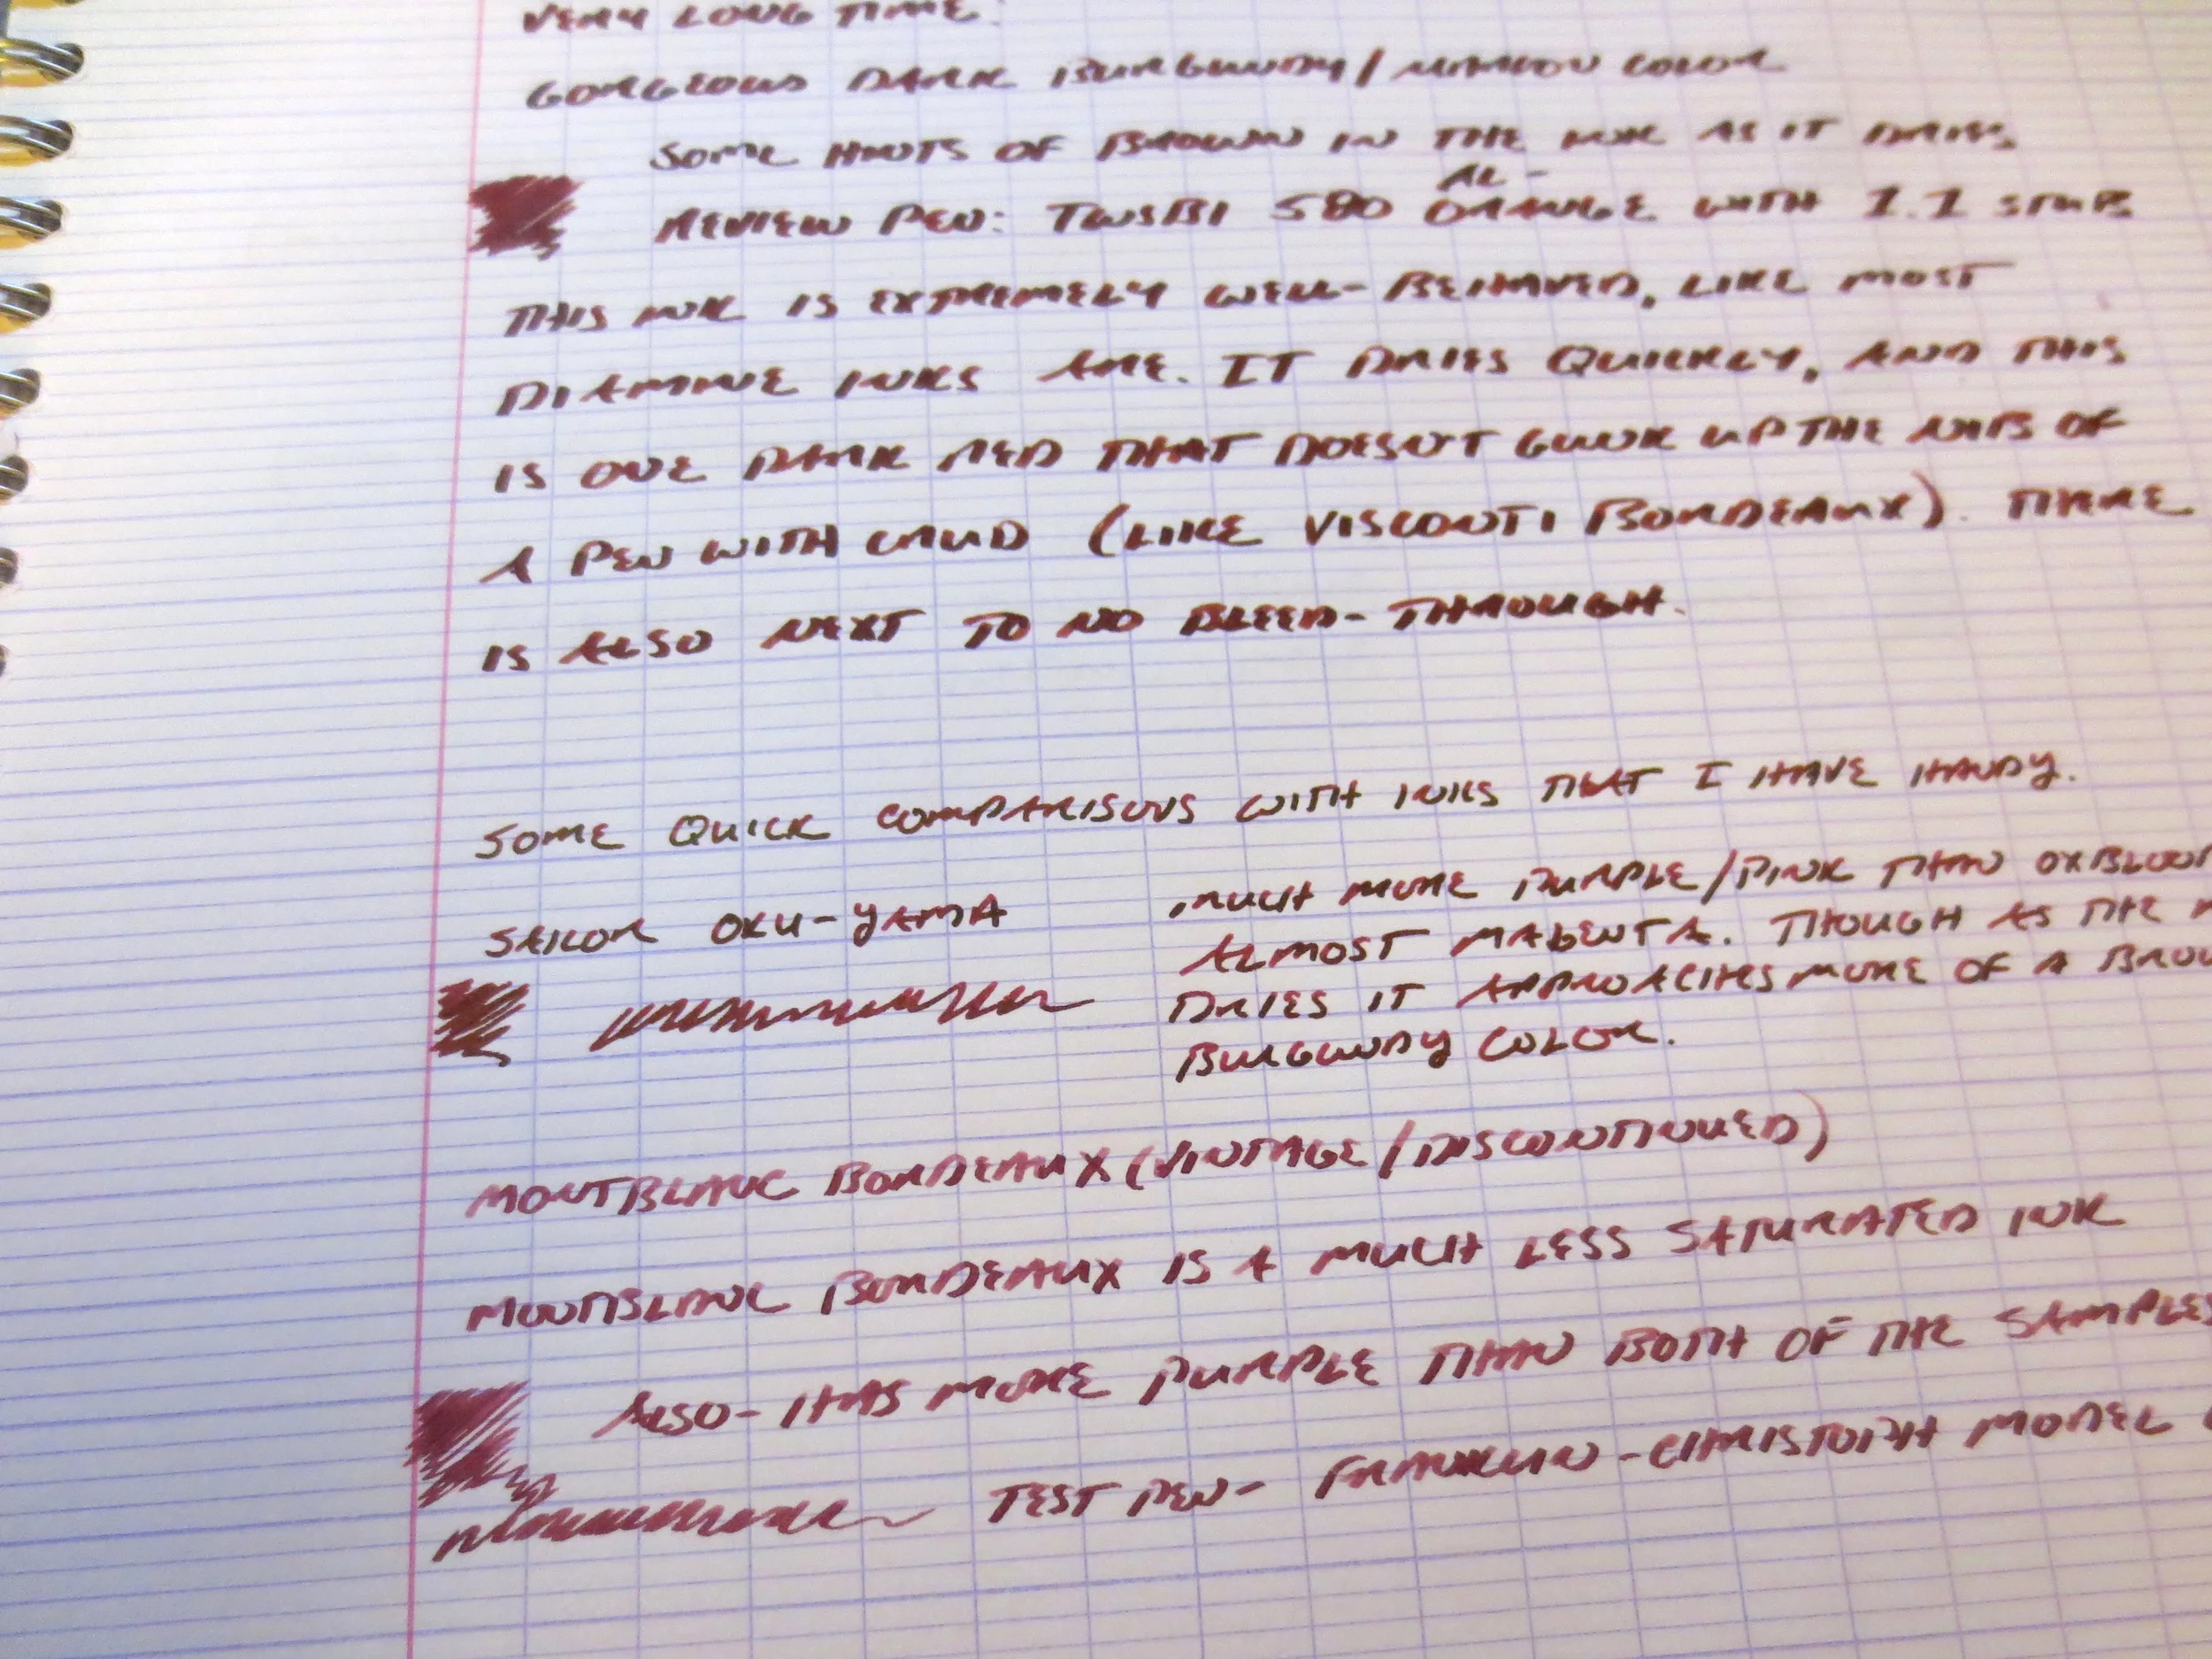 VERY LONG TIME.
GORGEOUS DARK BURGUNDY/MAROON COLOR
SOME HINTS OF BROWN IN THE INK AS IT DRIES
AL-
REVIEW PEN: TWSBI 580 ORANGE WITH 1.1 STUB
THIS INK IS EXTREMELY WELL-BEHAVED, LIKE MOST
DIAMINE INKS ARE. IT DRIES QUICKLY, AND THIS
IS ONE DARK RED THAT DOESN'T GUNK UP THE NIBS OF
A PEN WITH CRUD (LIKE VISCONTI BORDEAUX). THERE
IS ALSO NEXT TO NO BLEED-THROUGH.
SOME QUICK COMPARISONS WITH INKS THAT I HAVE HANDY.
SAILOR OKU-YAMA
MUCH MORE PURPLE/PINK THAN OXBLOOD
ALMOST MAGENTA. THOUGH AS THE
DRIES IT APPROACHES MORE OF A BROW
BURGUNDY COLOR.
MONTBLANC BORDEAUX (VINTAGE/DISCONTINUED)
MONTBLANC BORDEAUX IS A MUCH LESS SATURATED INK
ALSO-HAS MORE PURPLE THAN BOTH OF THE SAMPLES
TEST PEN- FRANKLIN-CHRISTOPH MODEL